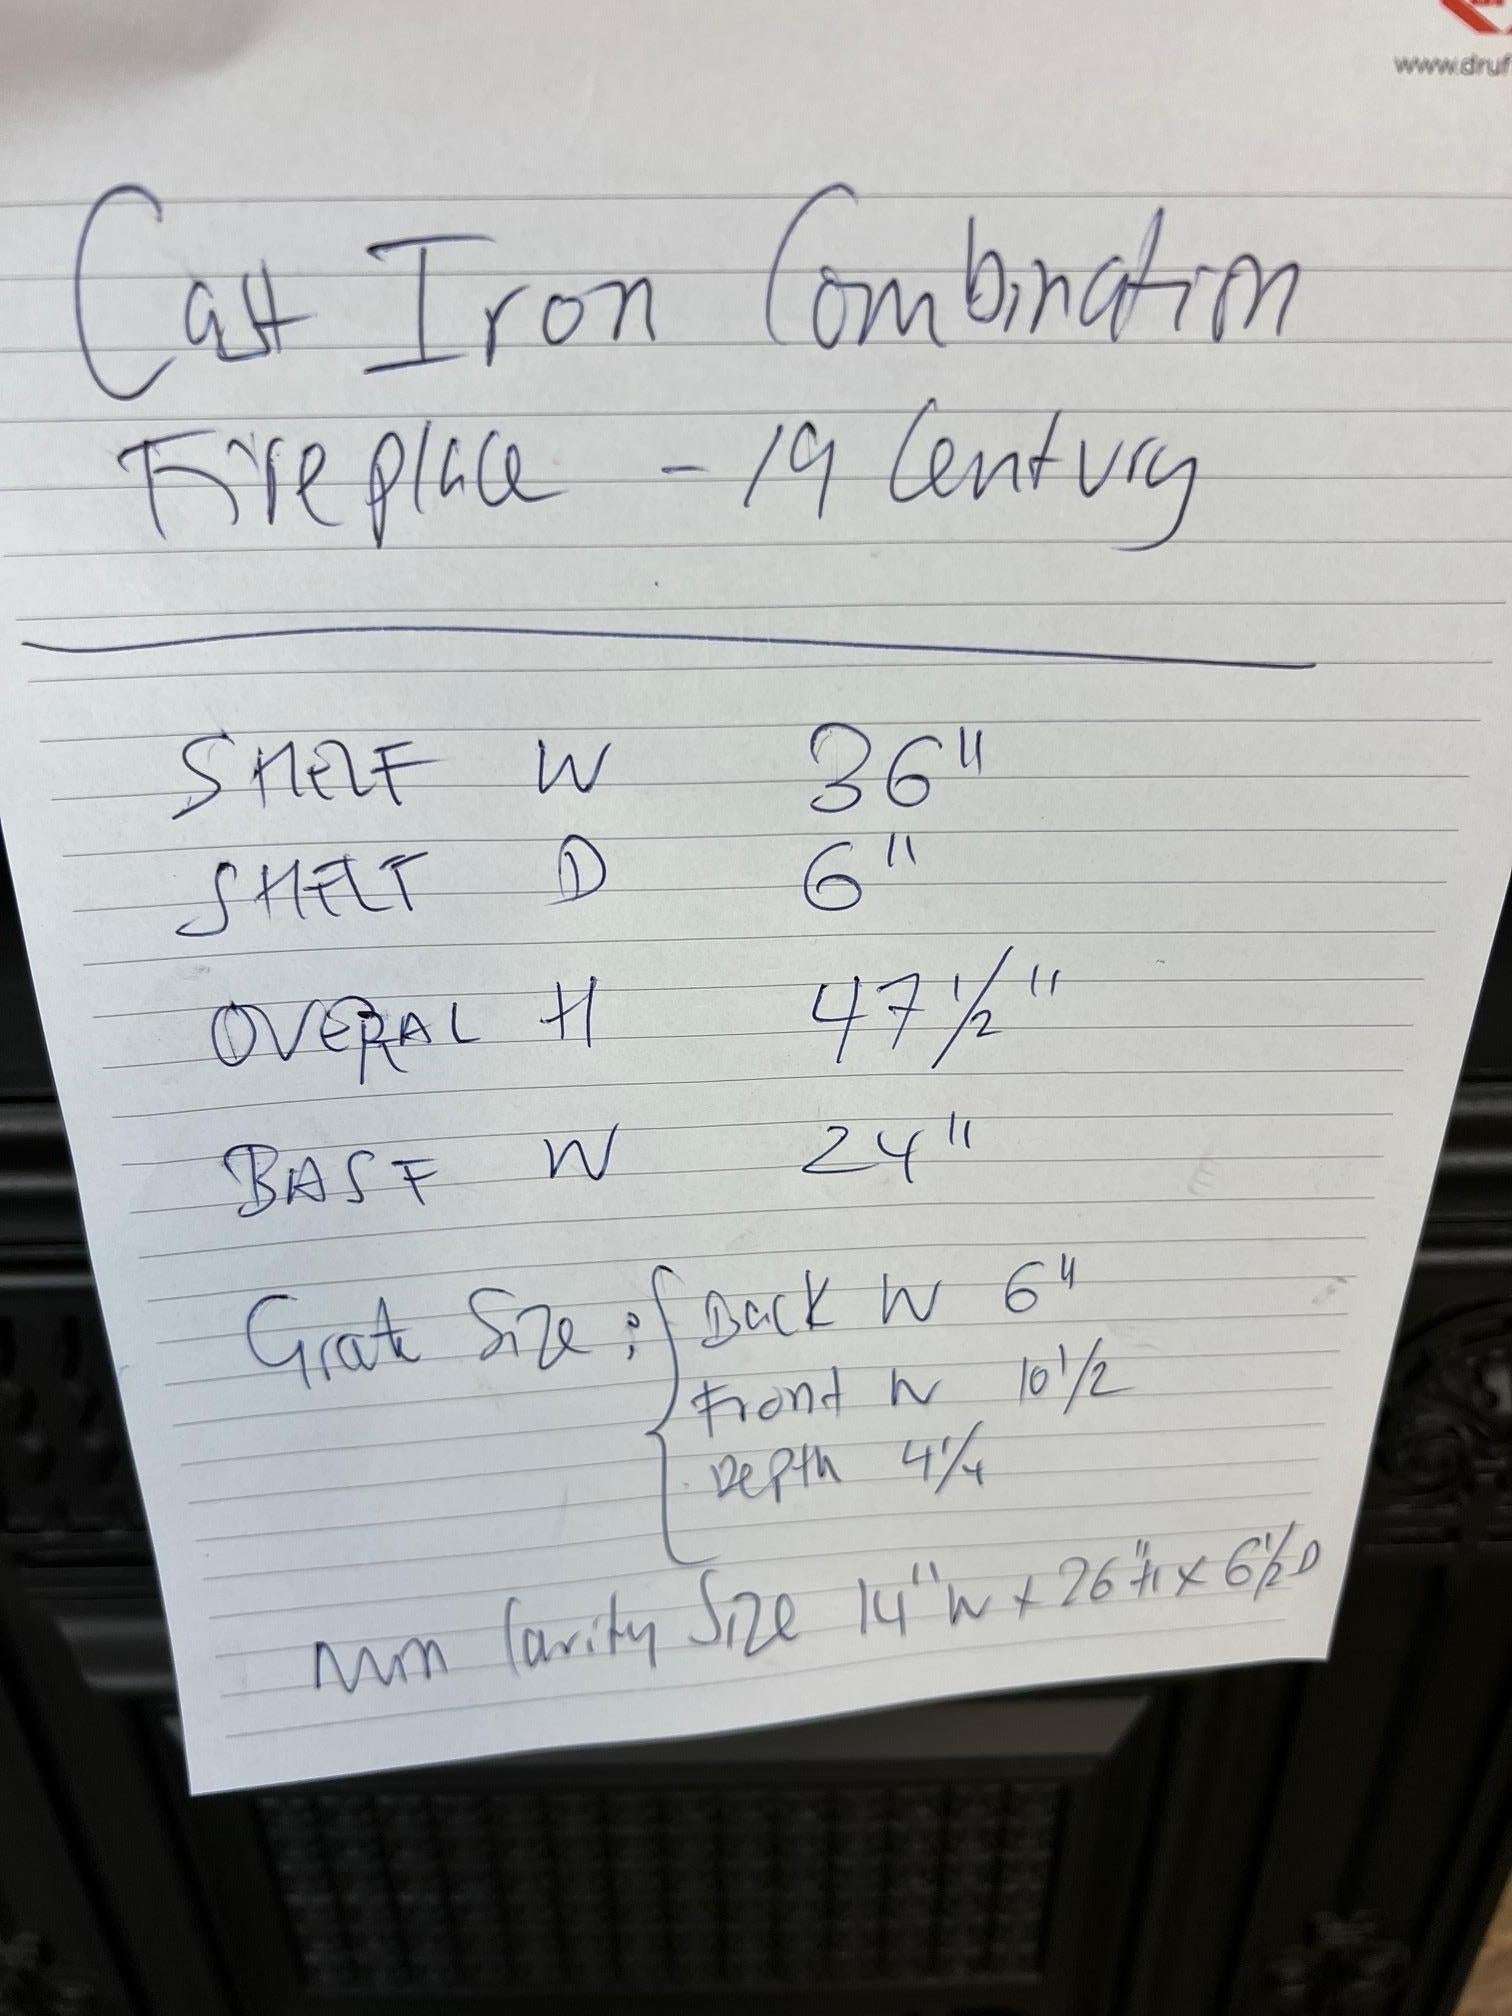 www.druf
Cast Iron Combination
Fireplace - 19 Century
SHELF W 36"
SHELF D 6"
OVERAL H 47 1/2"
BASE W 24"
Grate Size : { Back W 6"
Front W 10 1/2
Depth 4 1/4
min Cavity Size 14" W x 26" H x 6 1/2 D